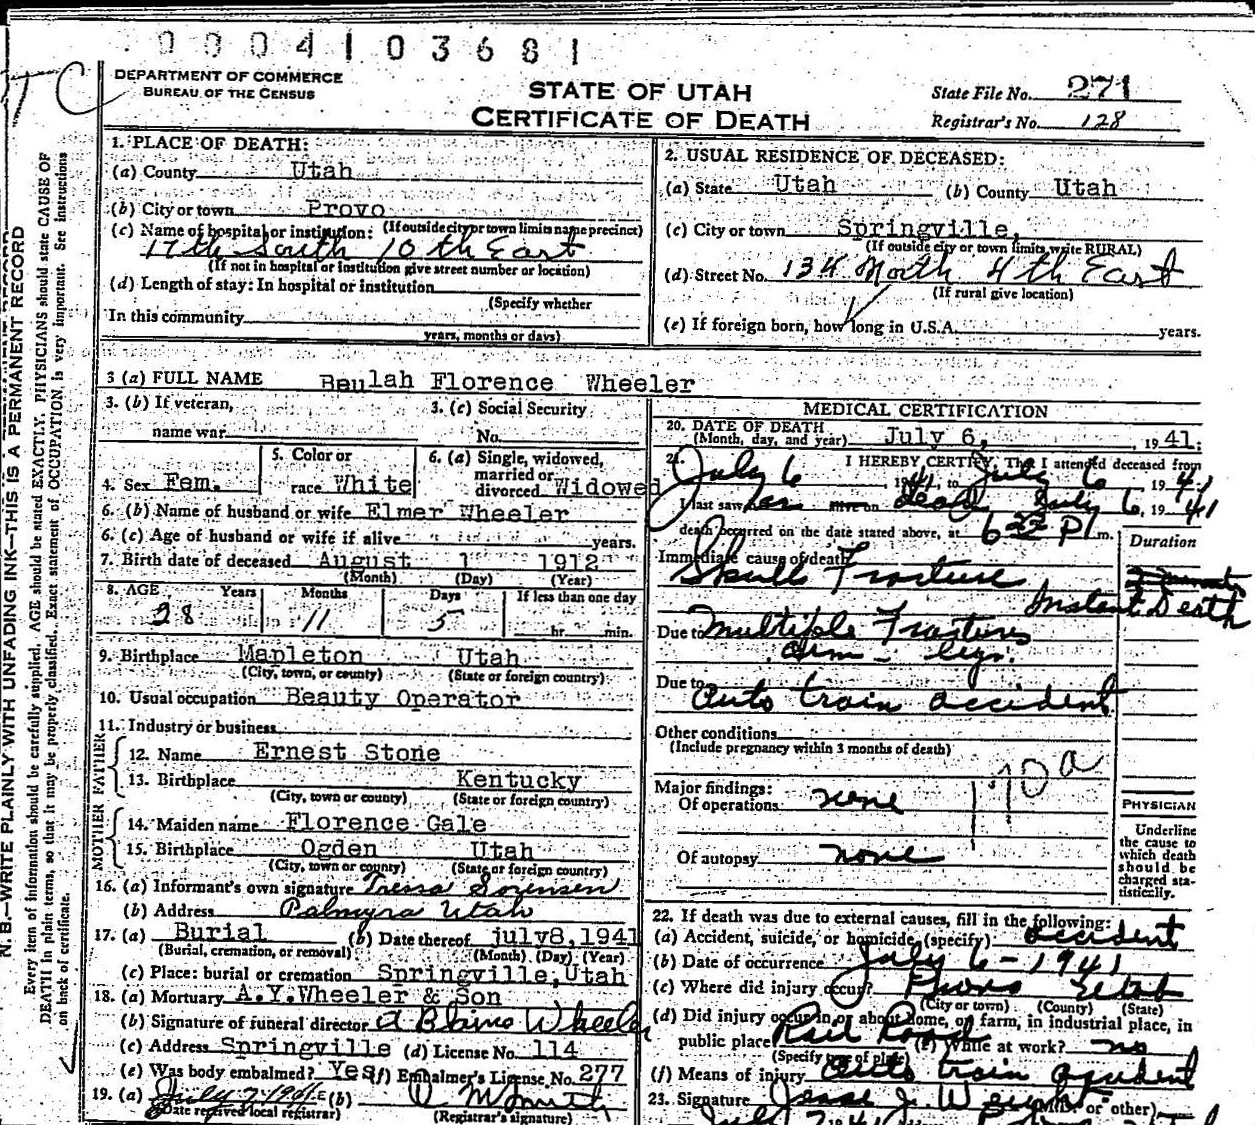 0004103681
TC
DEPARTMENT OF COMMERCE
BUREAU OF THE CENSUS
STATE OF UTAH
CERTIFICATE OF DEATH
State File No. 271
Registrar's No. 128
N. B.—WRITE PLAINLY WITH UNFADING INK—THIS IS A PERMANENT RECORD
Every item of information should be carefully supplied. AGE should be stated EXACTLY. PHYSICIANS should state CAUSE OF
DEATH in plain terms, so that it may be properly classified. Exact statement of OCCUPATION is very important. See instructions
on back of certificate.
1. PLACE OF DEATH:
(a) County Utah
(b) City or town Provo
(If outside city or town limits name precinct)
(c) Name of hospital or institution:
17th South 10th East
(If not in hospital or institution give street number or location)
(d) Length of stay: In hospital or institution
(Specify whether
In this community
years, months or days)
2. USUAL RESIDENCE OF DECEASED:
(a) State Utah (b) County Utah
(c) City or town Springville,
(If outside city or town limits, write RURAL)
(d) Street No. 134 North 4th East
(If rural give location)
(e) If foreign born, how long in U.S.A. years.
3 (a) FULL NAME Beulah Florence Wheeler
3. (b) If veteran,
name war
3. (c) Social Security
No.
4. Sex Fem.
5. Color or
race White
6. (a) Single, widowed,
married or
divorced Widowed
6. (b) Name of husband or wife Elmer Wheeler
6. (c) Age of husband or wife if alive years.
7. Birth date of deceased August 1 1912
(Month) (Day) (Year)
8. AGE Years Months Days If less than one day
28 11 5 hr. min.
9. Birthplace Mapleton Utah
(City, town, or county) (State or foreign country)
10. Usual occupation Beauty Operator
11. Industry or business
FATHER
12. Name Ernest Stone
13. Birthplace Kentucky
(City, town or county) (State or foreign country)
MOTHER
14. Maiden name Florence Gale
15. Birthplace Ogden Utah
(City, town or county) (State or foreign country)
16. (a) Informant's own signature Tressa Sorensen
(b) Address Palmyra Utah
17. (a) Burial (b) Date thereof july 8, 1941
(Burial, cremation, or removal) (Month) (Day) (Year)
(c) Place: burial or cremation Springville, Utah
18. (a) Mortuary A.Y. Wheeler & Son
(b) Signature of funeral director A Blaine Wheeler
(c) Address Springville (d) License No. 114
(e) Was body embalmed? Yes (f) Embalmer's License No. 277
19. (a) July 7-1941 (b)
(Date received local registrar) (Registrar's signature)
MEDICAL CERTIFICATION
20. DATE OF DEATH
(Month, day, and year) July 6, 1941.
21. I HEREBY CERTIFY, That I attended deceased from
July 6 1941, to July 6 1941
I last saw her alive on dead July 6, 1941
death occurred on the date stated above, at 6 22 P m.
Duration
Immediate cause of death
Skull Fracture
Instant Death
Due to Multiple Fractures
arm - legs.
Due to Auto train accident
Other conditions
(Include pregnancy within 3 months of death)
170a
Major findings:
Of operations none
Of autopsy none
PHYSICIAN
Underline
the cause to
which death
should be
charged sta-
tistically.
22. If death was due to external causes, fill in the following:
(a) Accident, suicide, or homicide (specify) accident
(b) Date of occurrence July 6 - 1941
(c) Where did injury occur? Provo Utah
(City or town) (County) (State)
(d) Did injury occur in or about home, on farm, in industrial place, in
public place Rail Road (e) While at work? no
(Specify type of place)
(f) Means of injury Auto train accident
23. Signature Jesse J. Weight (M.D. or other)